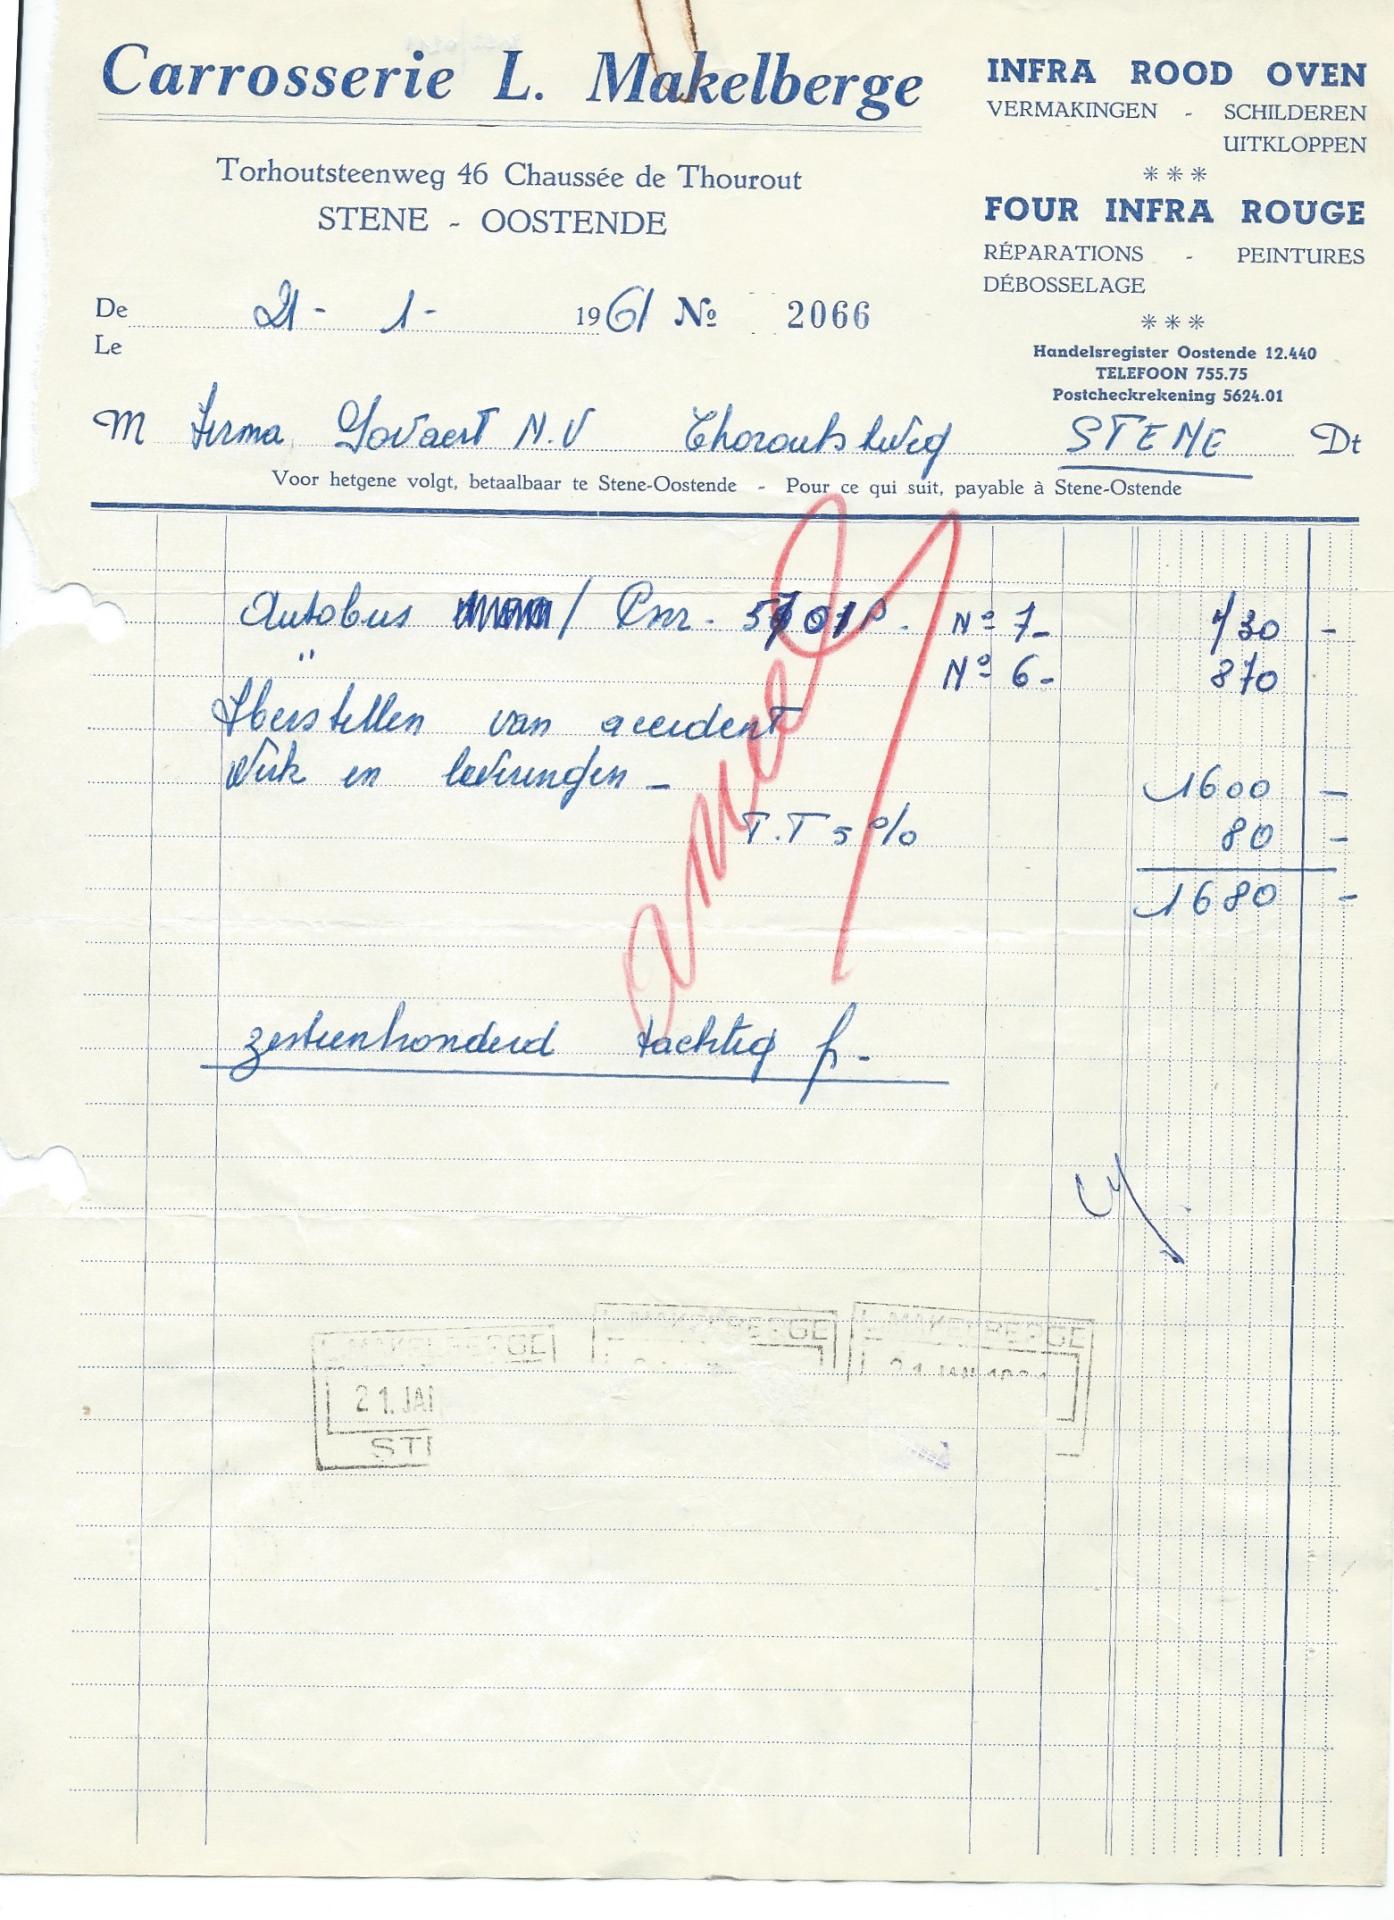 Carrosserie L. Makelberge
Torhoutsteenweg 46 Chaussée de Thourout
STENE - OOSTENDE
INFRA ROOD OVEN
VERMAKINGEN - SCHILDEREN
UITKLOPPEN
***
FOUR INFRA ROUGE
RÉPARATIONS - PEINTURES
DÉBOSSELAGE
***
Handelsregister Oostende 12.440
TELEFOON 755.75
Postcheckrekening 5624.01
De 21 - 1 - 1961 No 2066
Le
M Firma Govaert N.V Thoroutstweg STENE Dt
Voor hetgene volgt, betaalbaar te Stene-Oostende - Pour ce qui suit, payable à Stene-Ostende
Autobus / Pnr. No 7- 730 -
" No 6- 870
Herstellen van accident
Werk en leveringen - 1600 -
T.T 5 % 80 -
1680 -
zestienhonderd tachtig fr -
L. MAKELBERGE
L. MAKELBERGE
L. MAKELBERGE
21. JAN
STE